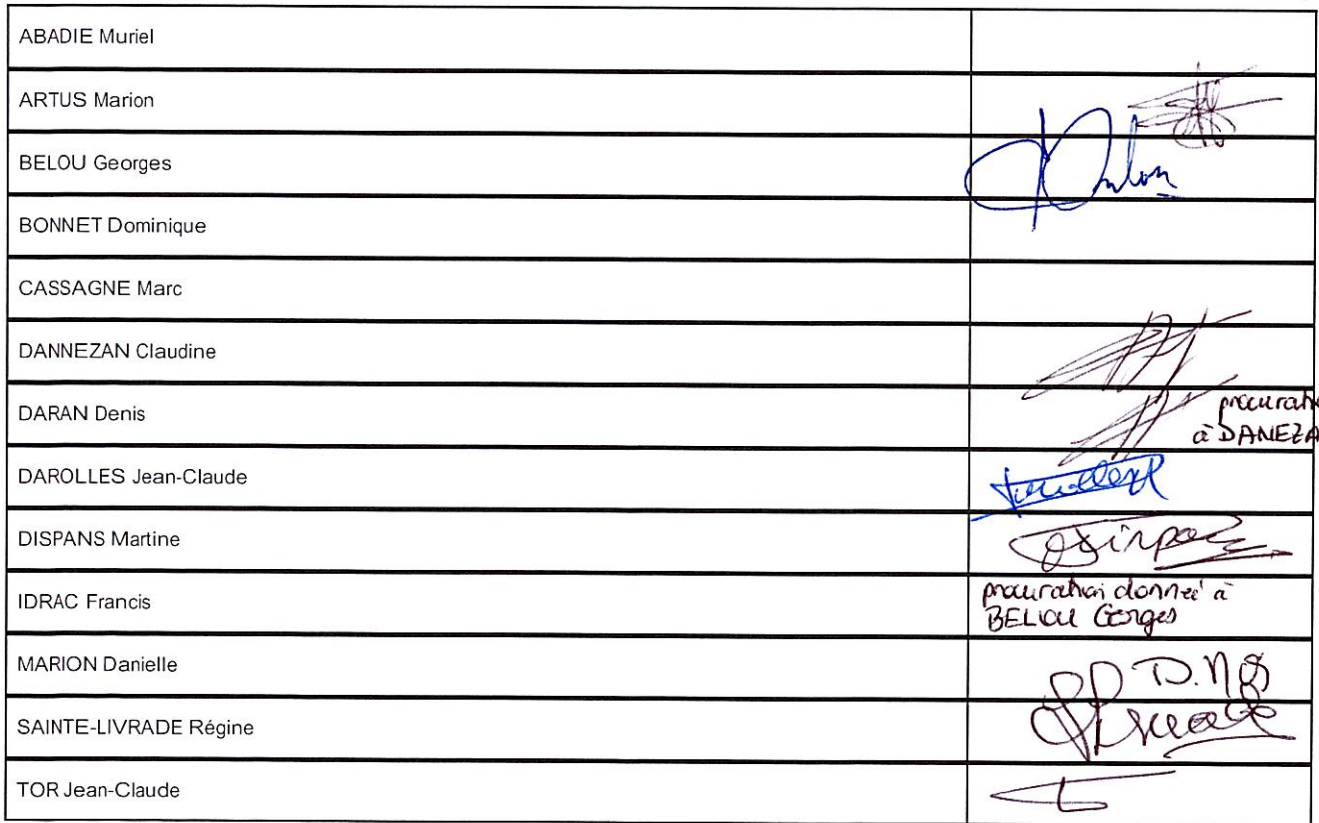 ABADIE Muriel
ARTUS Marion
BELOU Georges
BONNET Dominique
CASSAGNE Marc
DANNEZAN Claudine
DARAN Denis
procuration
à DANEZA
DAROLLES Jean-Claude
DISPANS Martine
IDRAC Francis
procuration donnée à
BELOU Georges
MARION Danielle
SAINTE-LIVRADE Régine
TOR Jean-Claude